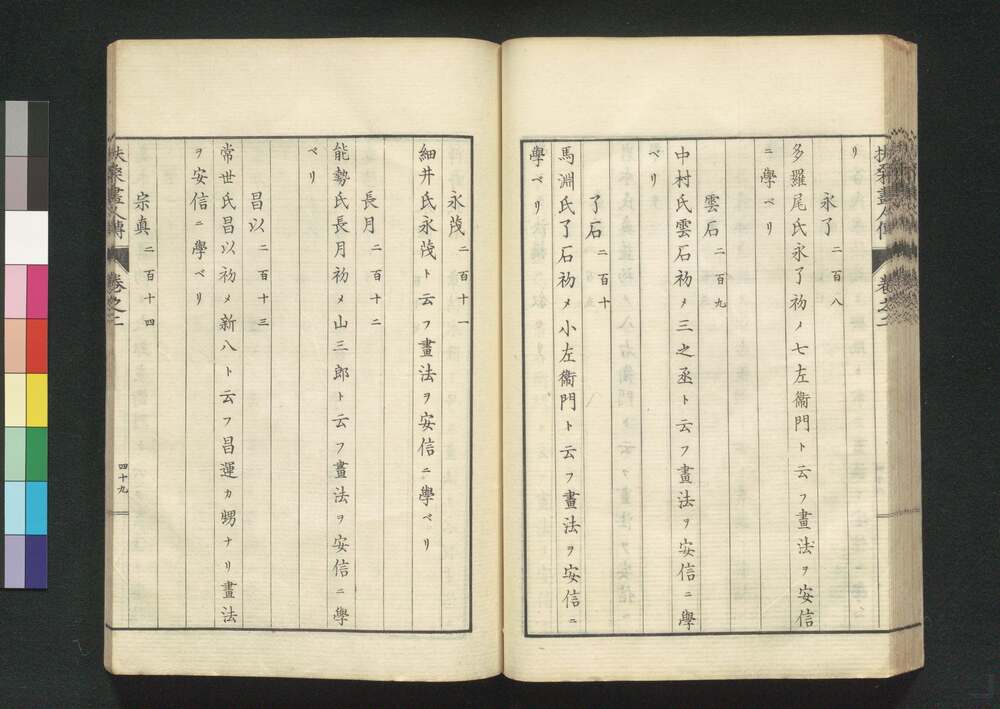 リ
永了 二百八
多羅尾氏永了初メ七左衞門ト云フ畫法ヲ安信
ニ學ベリ
雲石 二百九
中村氏雲石初メ三之丞ト云フ畫法ヲ安信ニ學
ベリ
了石 二百十
馬淵氏了石初メ小左衞門ト云フ畫法ヲ安信ニ
學ベリ
永茂 二百十一
細井氏永茂ト云フ畫法ヲ安信ニ學ベリ
長月 二百十二
能勢氏長月初メ山三郎ト云フ畫法ヲ安信ニ學
ベリ
昌以 二百十三
常世氏昌以初メ新八ト云フ昌運カ甥ナリ畫法
ヲ安信ニ學ベリ
宗真 二百十四
扶桑畫人傳 卷之二
四十九